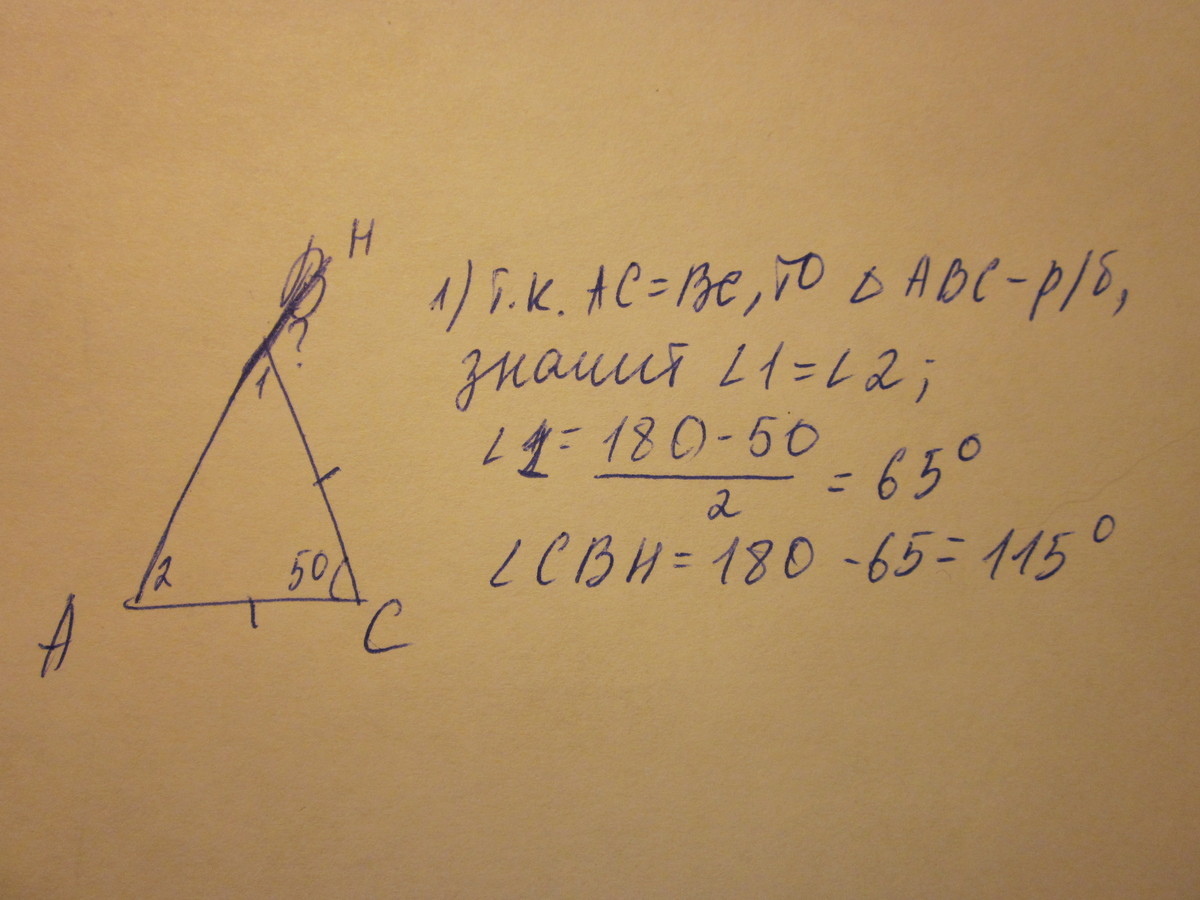 H
?
1
2
50
A
C
1) т.к. AC=BC, то △ ABC – р/б,
значит ∠1=∠2;
∠1= 180-50
2
= 65°
∠CBH = 180 -65= 115°